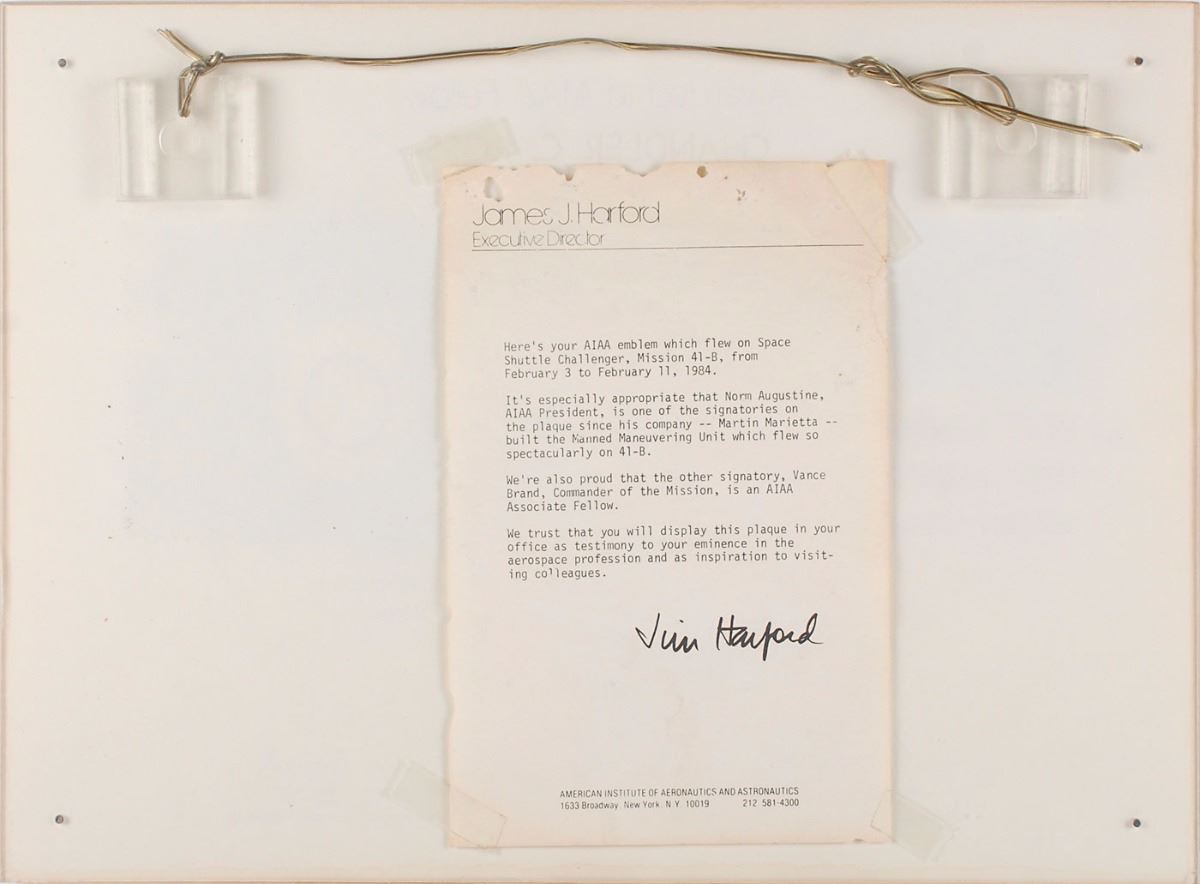 James J. Harford
Executive Director
Here's your AIAA emblem which flew on Space
Shuttle Challenger, Mission 41-B, from
February 3 to February 11, 1984.
It's especially appropriate that Norm Augustine,
AIAA President, is one of the signatories on
the plaque since his company -- Martin Marietta --
built the Manned Maneuvering Unit which flew so
spectacularly on 41-B.
We're also proud that the other signatory, Vance
Brand, Commander of the Mission, is an AIAA
Associate Fellow.
We trust that you will display this plaque in your
office as testimony to your eminence in the
aerospace profession and as inspiration to visit-
ing colleagues.
Jim Harford
AMERICAN INSTITUTE OF AERONAUTICS AND ASTRONAUTICS
1633 Broadway New York N Y 10019 212 581-4300